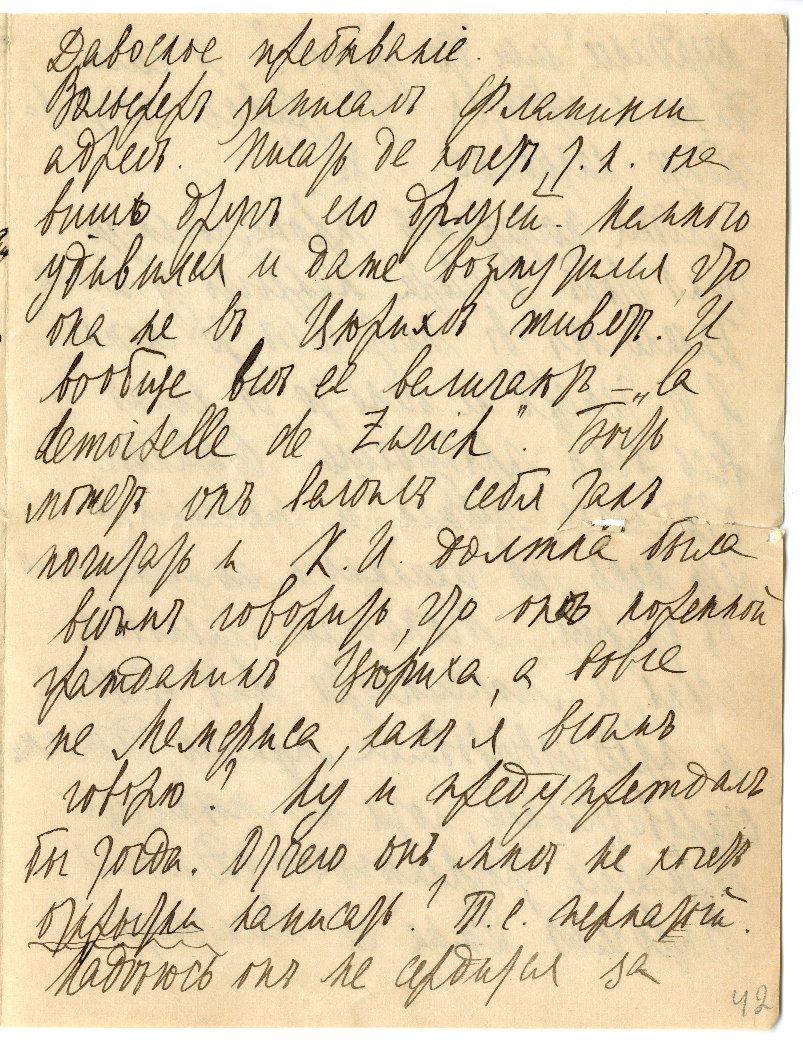 Давосное пребыванiе.
Вольферъ записалъ Фламинги
адресъ. Писать де хочетъ, т. к. она
вишь другъ его друзей. Немного
удивился и даже возмутился, что
она не въ Цюрихѣ живетъ. И
вообще всѣ ее величаютъ – „la
demoiselle de Zurich". Быть
можетъ онъ велѣлъ себя такъ
почитать и К. И. должна была
всѣмъ говорить, что онъ коренной
гражданинъ Цюриха, а вовсе
не Мемфиса, какъ я всѣмъ
говорю? Ну и предупреждалъ
бы тогда. Отчего онъ мнѣ не хочетъ
открытки написать? Т. е. пернатой.
Надѣюсь онъ не сердится за
42